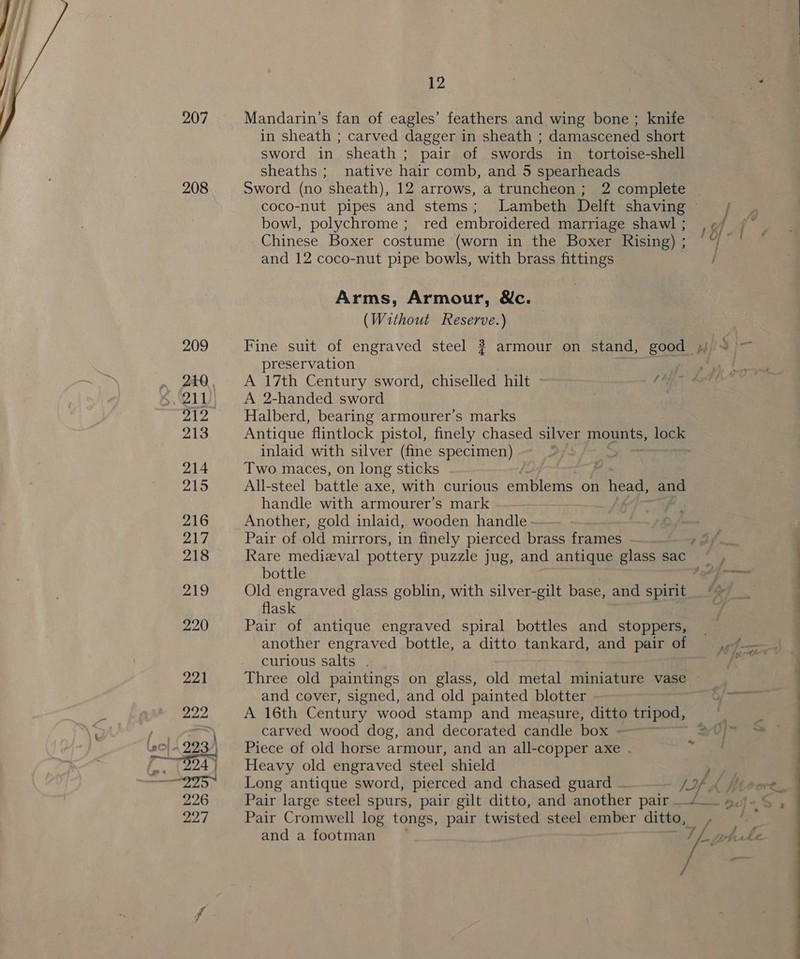 12
207 Mandarin's fan of eagles' feathers and wing bone ; knife
in sheath ; carved dagger in sheath ; damascened short
sword in sheath ; pair of swords in tortoise-shell
sheaths ; native hair comb, and 5 spearheads
208 Sword (no sheath), 12 arrows, a truncheon ; 2 complete
coco-nut pipes and stems ; Lambeth Delft shaving
bowl, polychrome ; red embroidered marriage shawl ;
Chinese Boxer costume (worn in the Boxer Rising) ;
and 12 coco-nut pipe bowls, with brass fittings
Arms, Armour, &c.
(Without Reserve.)
209 Fine suit of engraved steel ¾ armour on stand, good
preservation
210 A 17th Century sword, chiselled hilt
211 A 2-handed sword
212 Halberd, bearing armourer's marks
213 Antique flintlock pistol, finely chased silver mounts, lock
inlaid with silver (fine specimen)
214 Two maces, on long sticks
215 All-steel battle axe, with curious emblems on head, and
handle with armourer's mark
216 Another, gold inlaid, wooden handle
217 Pair of old mirrors, in finely pierced brass frames
218 Rare mediæval pottery puzzle jug, and antique glass sac
bottle
219 Old engraved glass goblin, with silver-gilt base, and spirit
flask
220 Pair of antique engraved spiral bottles and stoppers,
another engraved bottle, a ditto tankard, and pair of
curious salts .
221 Three old paintings on glass, old metal miniature vase
and cover, signed, and old painted blotter
222 A 16th Century wood stamp and measure, ditto tripod,
carved wood dog, and decorated candle box
223 Piece of old horse armour, and an all-copper axe .
224 Heavy old engraved steel shield
225 Long antique sword, pierced and chased guard
226 Pair large steel spurs, pair gilt ditto, and another pair
227 Pair Cromwell log tongs, pair twisted steel ember ditto,
and a footman